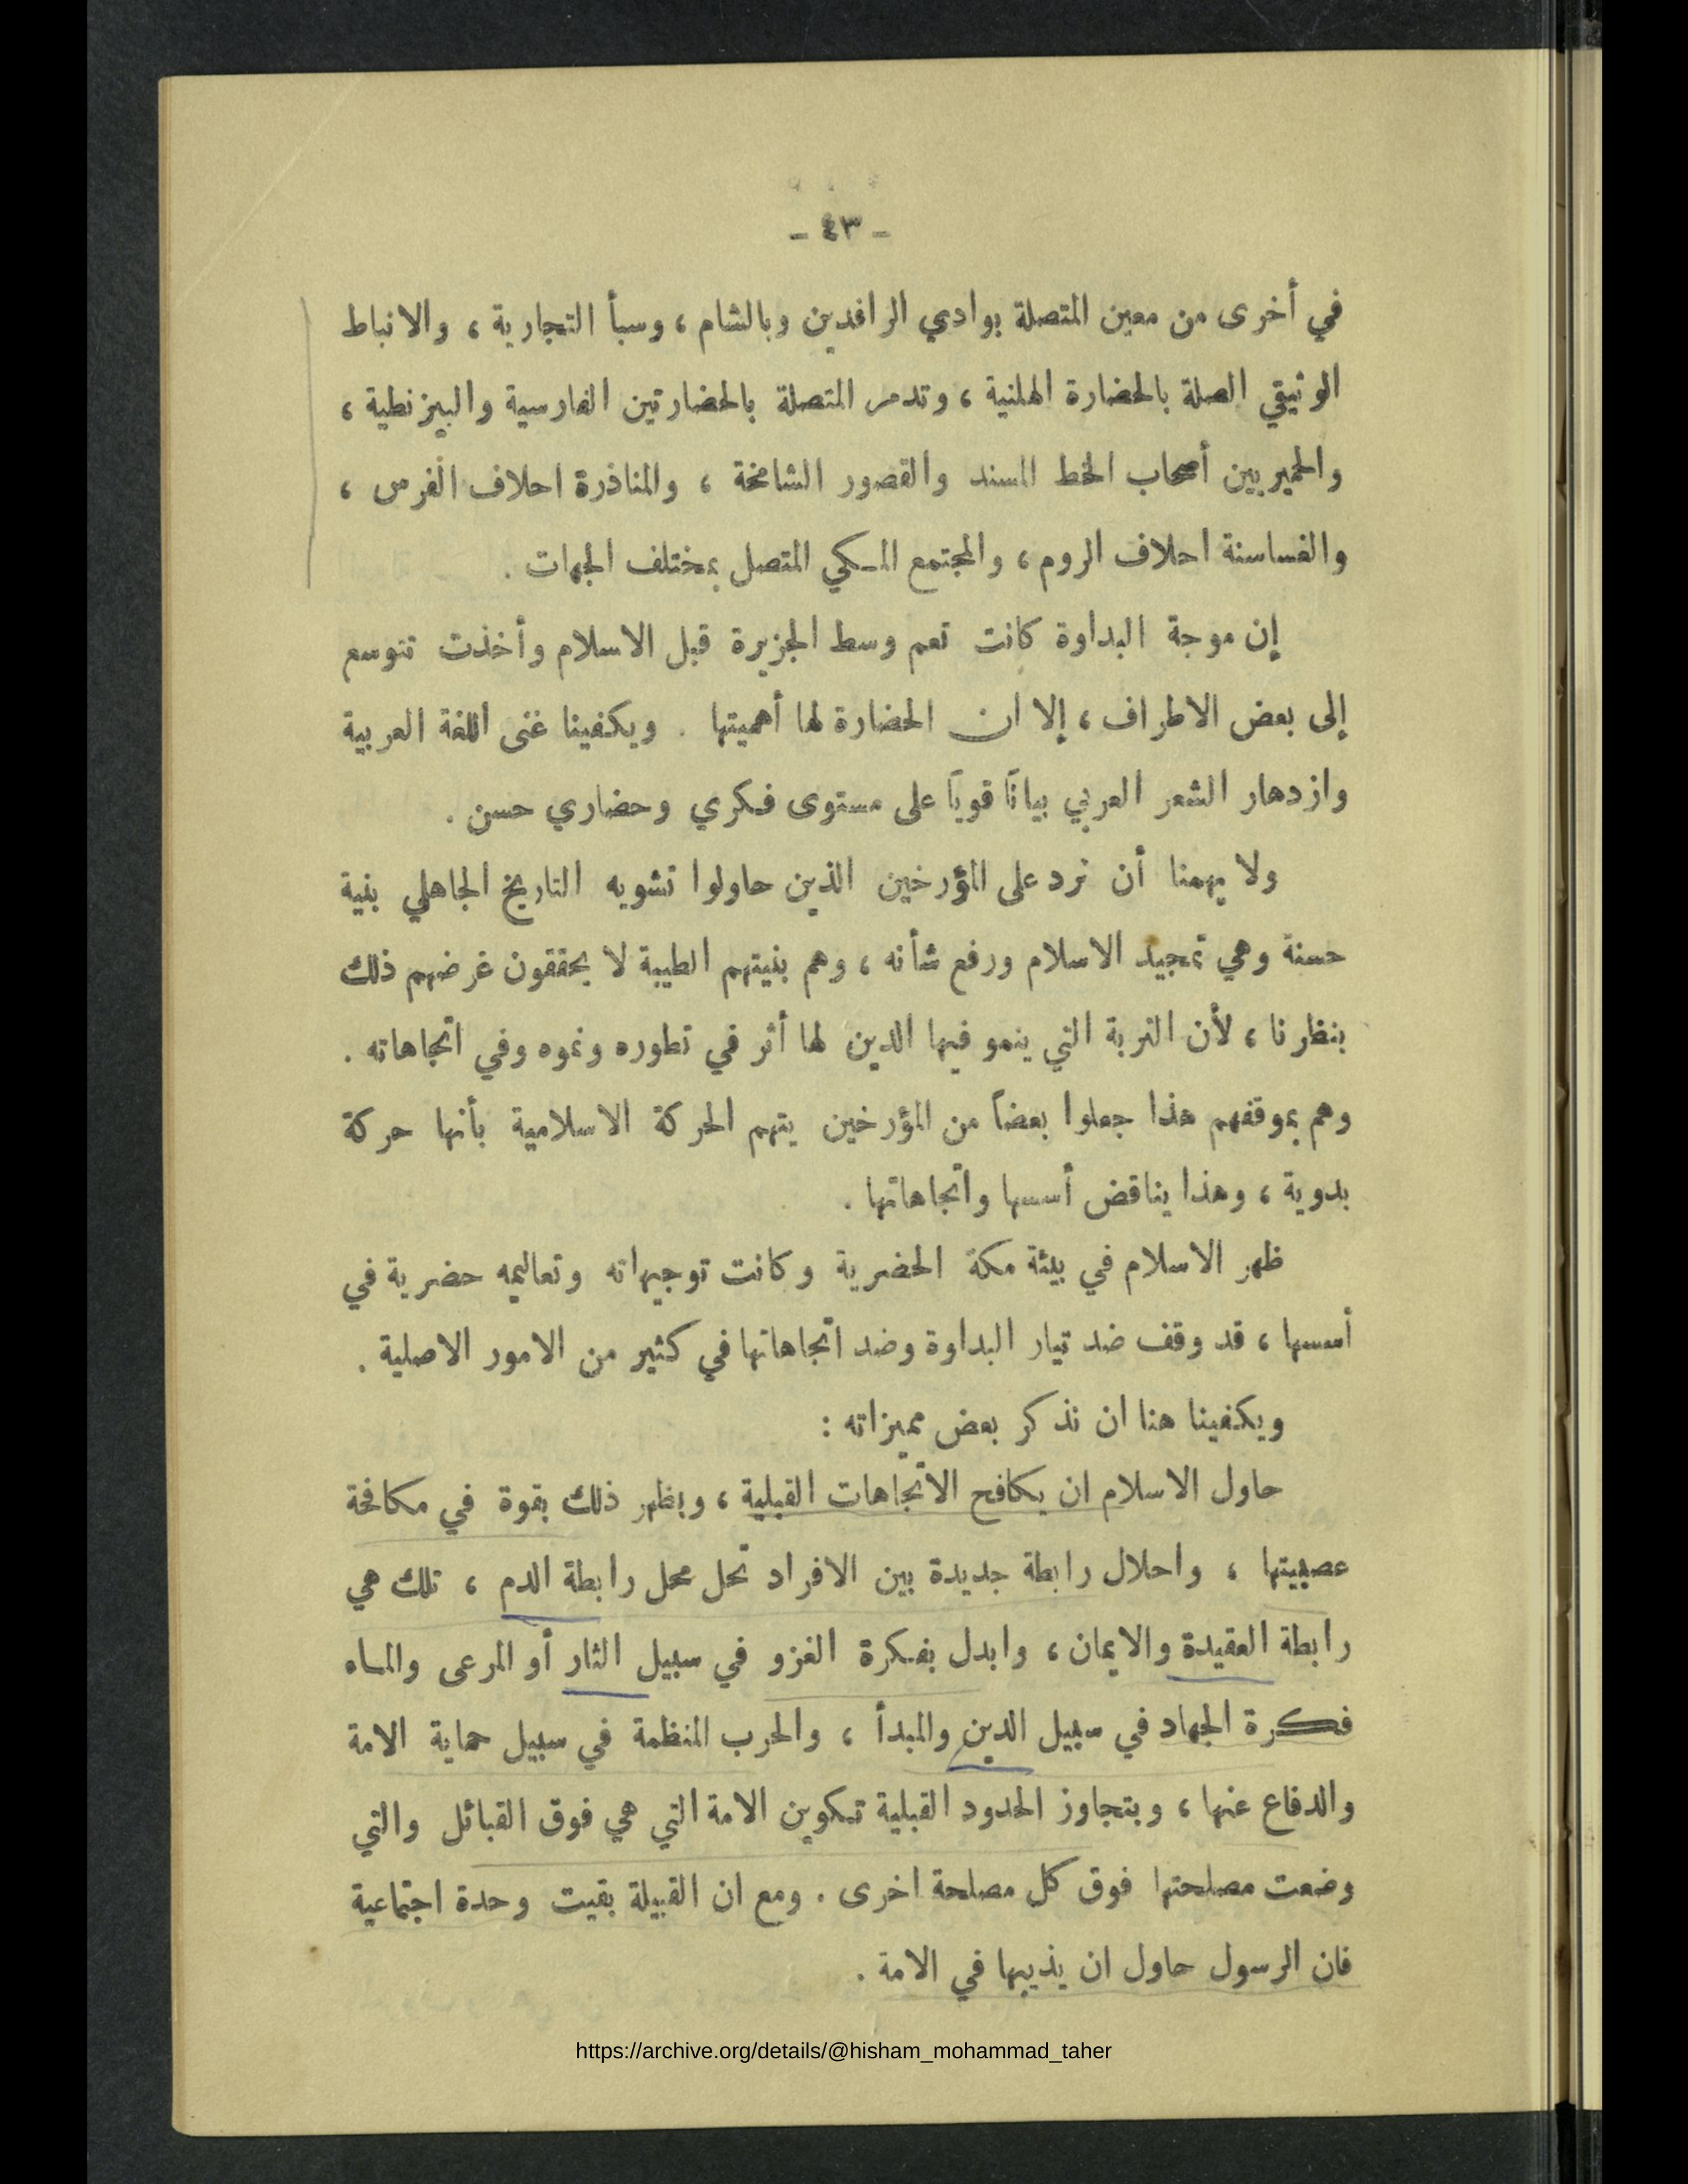 - ٤٣ -
في أخرى من معين المتصلة بوادي الرافدين وبالشام ، وسبأ التجارية ، والانباط
الوثيقي الصلة بالحضارة الهلنية ، وتدمر المتصلة بالحضارتين الفارسية والبيزنطية ،
والحميريين أصحاب الخط المسند والقصور الشامخة ، والمناذرة احلاف الفرس ،
والغساسنة احلاف الروم ، والمجتمع المكي المتصل بمختلف الجهات .
إن موجة البداوة كانت تعم وسط الجزيرة قبل الاسلام وأخذت تتوسع
إلى بعض الاطراف ، إلا ان الحضارة لها أهميتها . ويكفينا غنى اللغة العربية
وازدهار الشعر العربي بياناً قوياً على مستوى فكري وحضاري حسن .
ولا يهمنا أن نرد على المؤرخين الذين حاولوا تشويه التاريخ الجاهلي بنية
حسنة وهي تمجيد الاسلام ورفع شأنه ، وهم بنيتهم الطيبة لا يحققون غرضهم ذلك
بنظرنا ، لأن التربة التي ينمو فيها الدين لها أثر في تطوره ونموه وفي اتجاهاته .
وهم بموقفهم هذا جعلوا بعضاً من المؤرخين يتهم الحركة الاسلامية بأنها حركة
بدوية ، وهذا يناقض أسسها واتجاهاتها .
ظهر الاسلام في بيئة مكة الحضرية وكانت توجيهاته وتعاليمه حضرية في
أسسها ، قد وقف ضد تيار البداوة وضد اتجاهاتها في كثير من الامور الاصلية .
ويكفينا هنا ان نذكر بعض مميزاته :
حاول الاسلام ان يكافح الاتجاهات القبلية ، ويظهر ذلك بقوة في مكافحة
عصبيتها ، واحلال رابطة جديدة بين الافراد تحل محل رابطة الدم ، تلك هي
رابطة العقيدة والايمان ، وابدل بفكرة الغزو في سبيل الثار أو المرعى والماء
فكرة الجهاد في سبيل الدين والمبدأ ، والحرب المنظمة في سبيل حماية الامة
والدفاع عنها ، وبتجاوز الحدود القبلية تكوين الامة التي هي فوق القبائل والتي
وضعت مصلحتها فوق كل مصلحة اخرى . ومع ان القبيلة بقيت وحدة اجتماعية
فان الرسول حاول ان يذيبها في الامة .
https://archive.org/details/@hisham_mohammad_taher